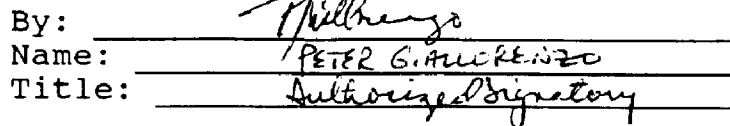 By:
Name: PETER GIALLORENZO
Title: Authorized Signatory